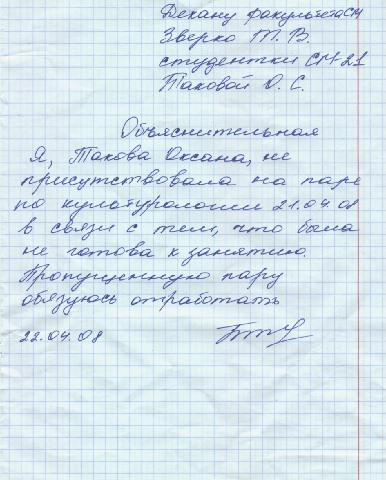 Декану факультета СМ
Зверко Т. В.
студентки СМ-21
Таковой О. С.
Объяснительная
Я, Такова Оксана, не
присутствовала на паре
по культурологии 21.04.08
в связи с тем, что была
не готова к занятию.
Пропущенную пару
обязуюсь отработать
22.04.08